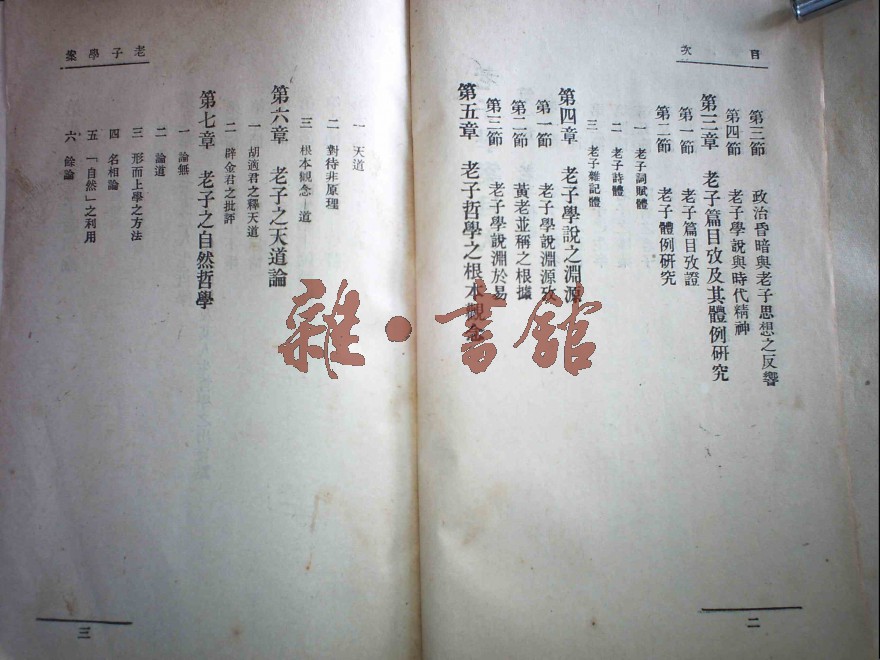 目次
第三節　政治昏暗與老子思想之反響
第四節　老子學說與時代精神
第三章　老子篇目攷及其體例研究
第一節　老子篇目攷證
第二節　老子體例研究
一　老子詞賦體
二　老子詩體
三　老子雜記體
第四章　老子學說之淵源
第一節　老子學說淵源攷
第二節　黃老並稱之根據
第三節　老子學說淵於易
第五章　老子哲學之根本觀念
二
老子學案
一　天道
二　對待非原理
三　根本觀念—道
第六章　老子之天道論
一　胡適君之釋天道
二　辟金君之批評
第七章　老子之自然哲學
一　論無
二　論道
三　形而上學之方法
四　名相論
五　「自然」之利用
六　餘論
三
雜·書館